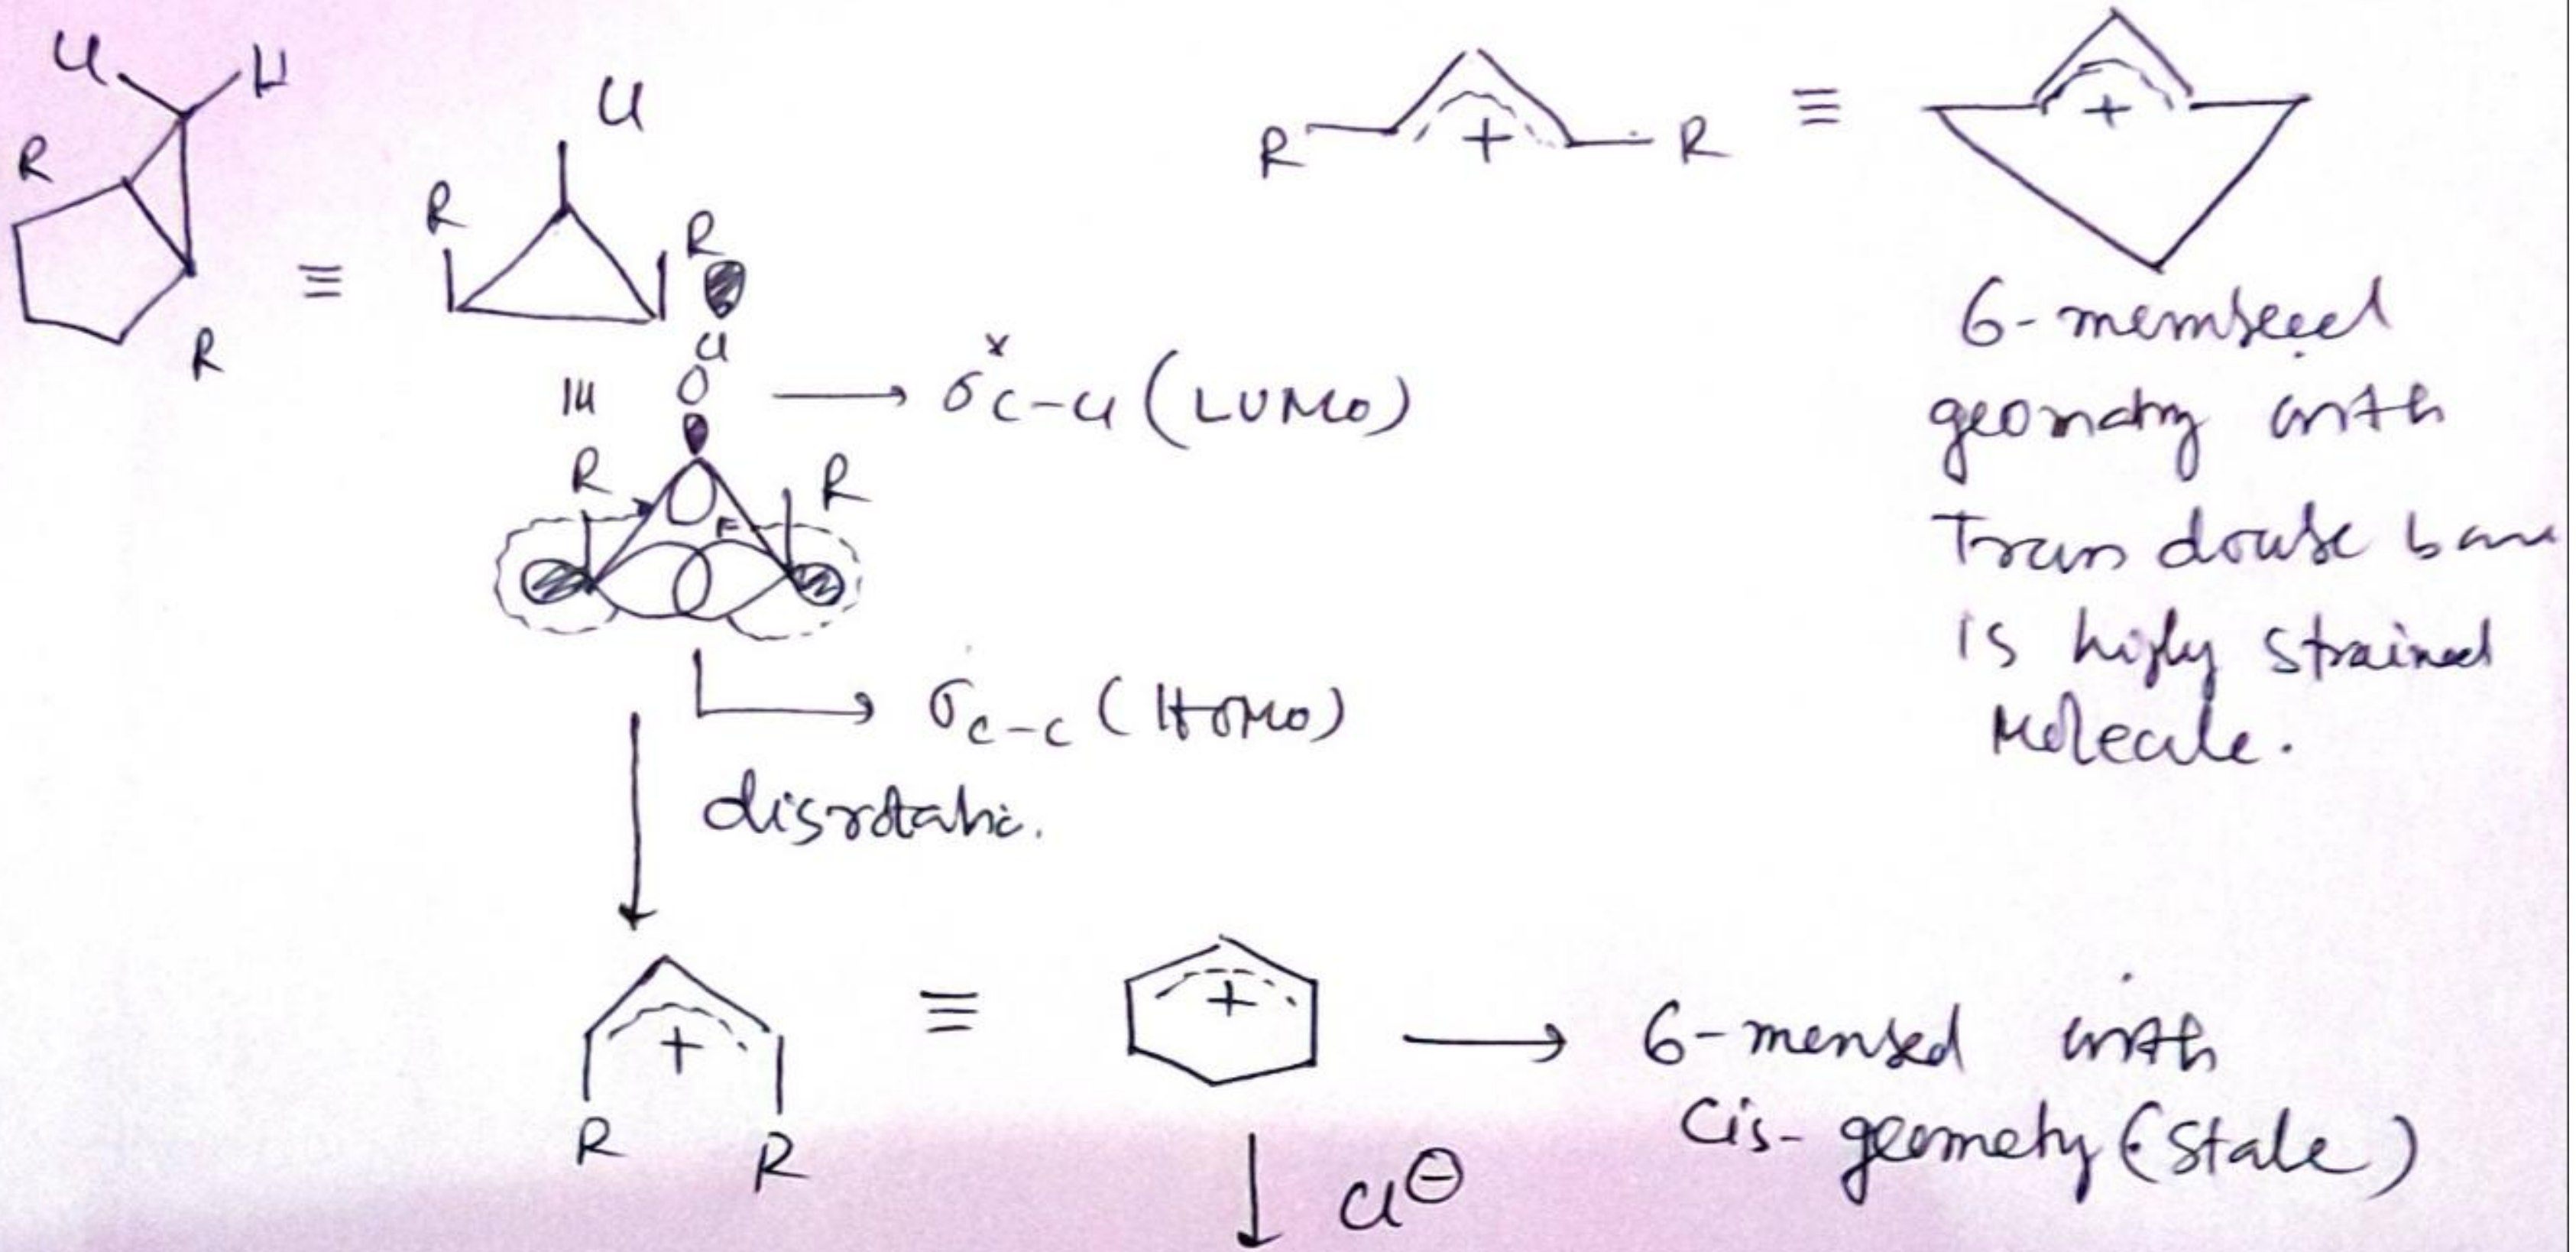 Cl H
R
R
Cl
R R
≡
Cl
III
→ σ*C-Cl (LUMO)
R R
→ σC-C (HOMO)
disrotatic.
R + R ≡ +
6-membered
geometry with
Trans double
is highly strained
Molecule.
+
R R
≡ + → 6-membed with
Cis- geomety (Stale)
↓ Cl⊖